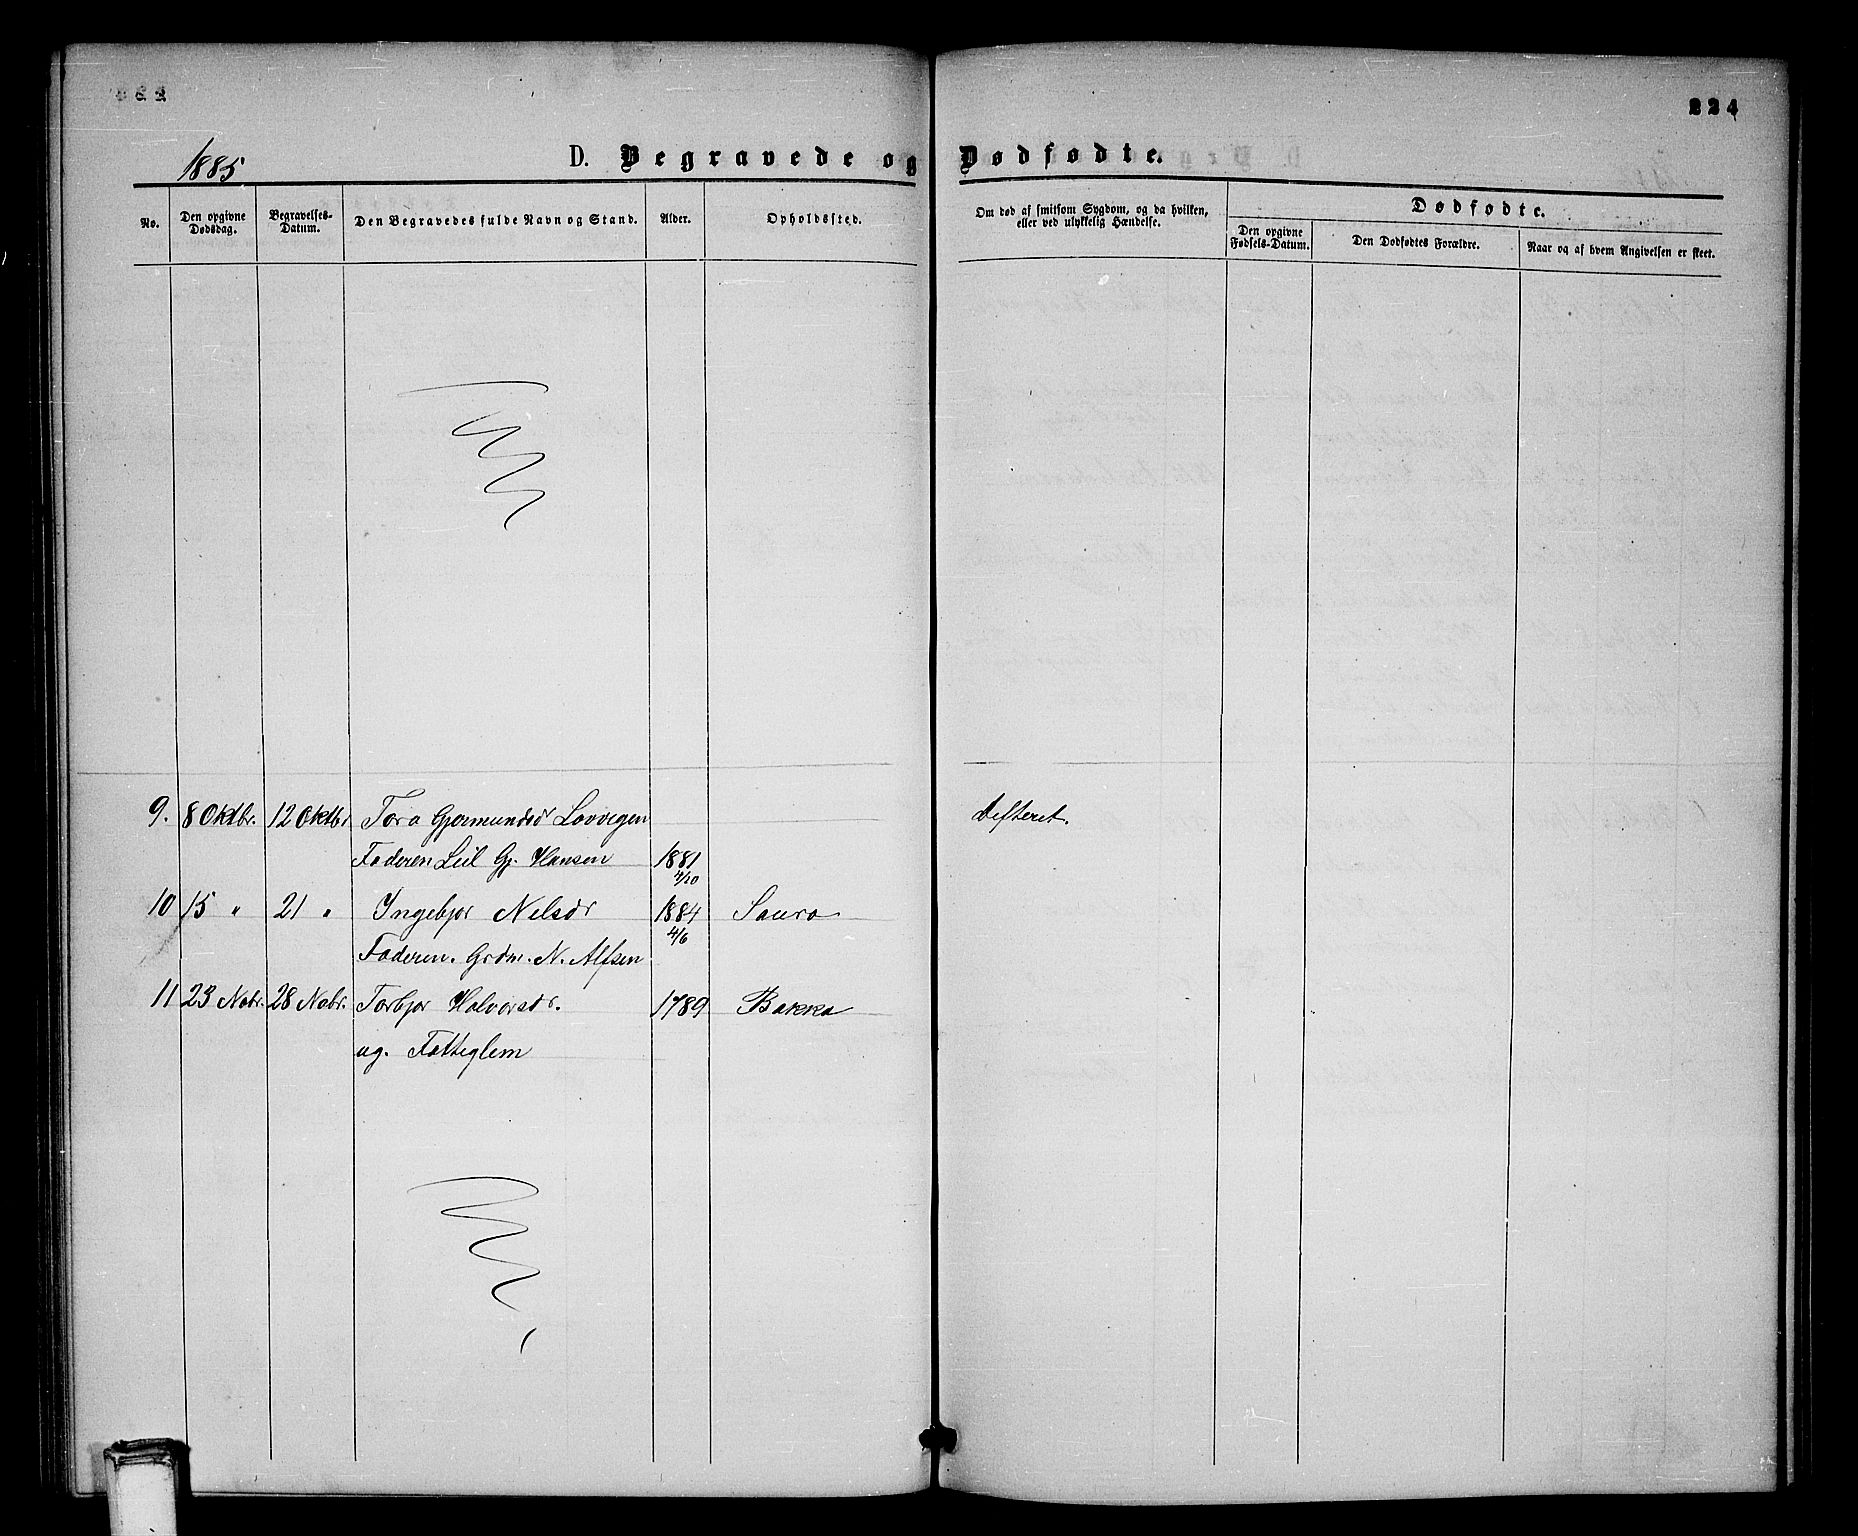 224
1885
D. Begravede og Dødfødte.
No.
Den opgivne Dødsdag.
Begravelses-Datum.
Den Begravedes fulde Navn og Stand.
Alder.
Opholdssted.
Om død af smitsom Sygdom, og da hvilken,
eller ved ulykkelig Hændelse.
Dødfødte.
Den opgivne
Fødsels-Datum.
Den Dødfødtes Forældre.
Naar og af hvem Angivelsen er skeet.
9. 8 Oktbr. 12 Oktbr Tora Gjermundsdr Lovvegen defteret.
Faderen Leil. Gj. Hansen 1881
4/10
10 15 " 21 " Ingebjor Nelsdr 1884 Saura
4/6
Faderen. Grdm. N. Alfsen
11 23 Nobr. 28 Nobr. Torbjor Halvorsdr. 1789 Bakka
ug. Fatteglem